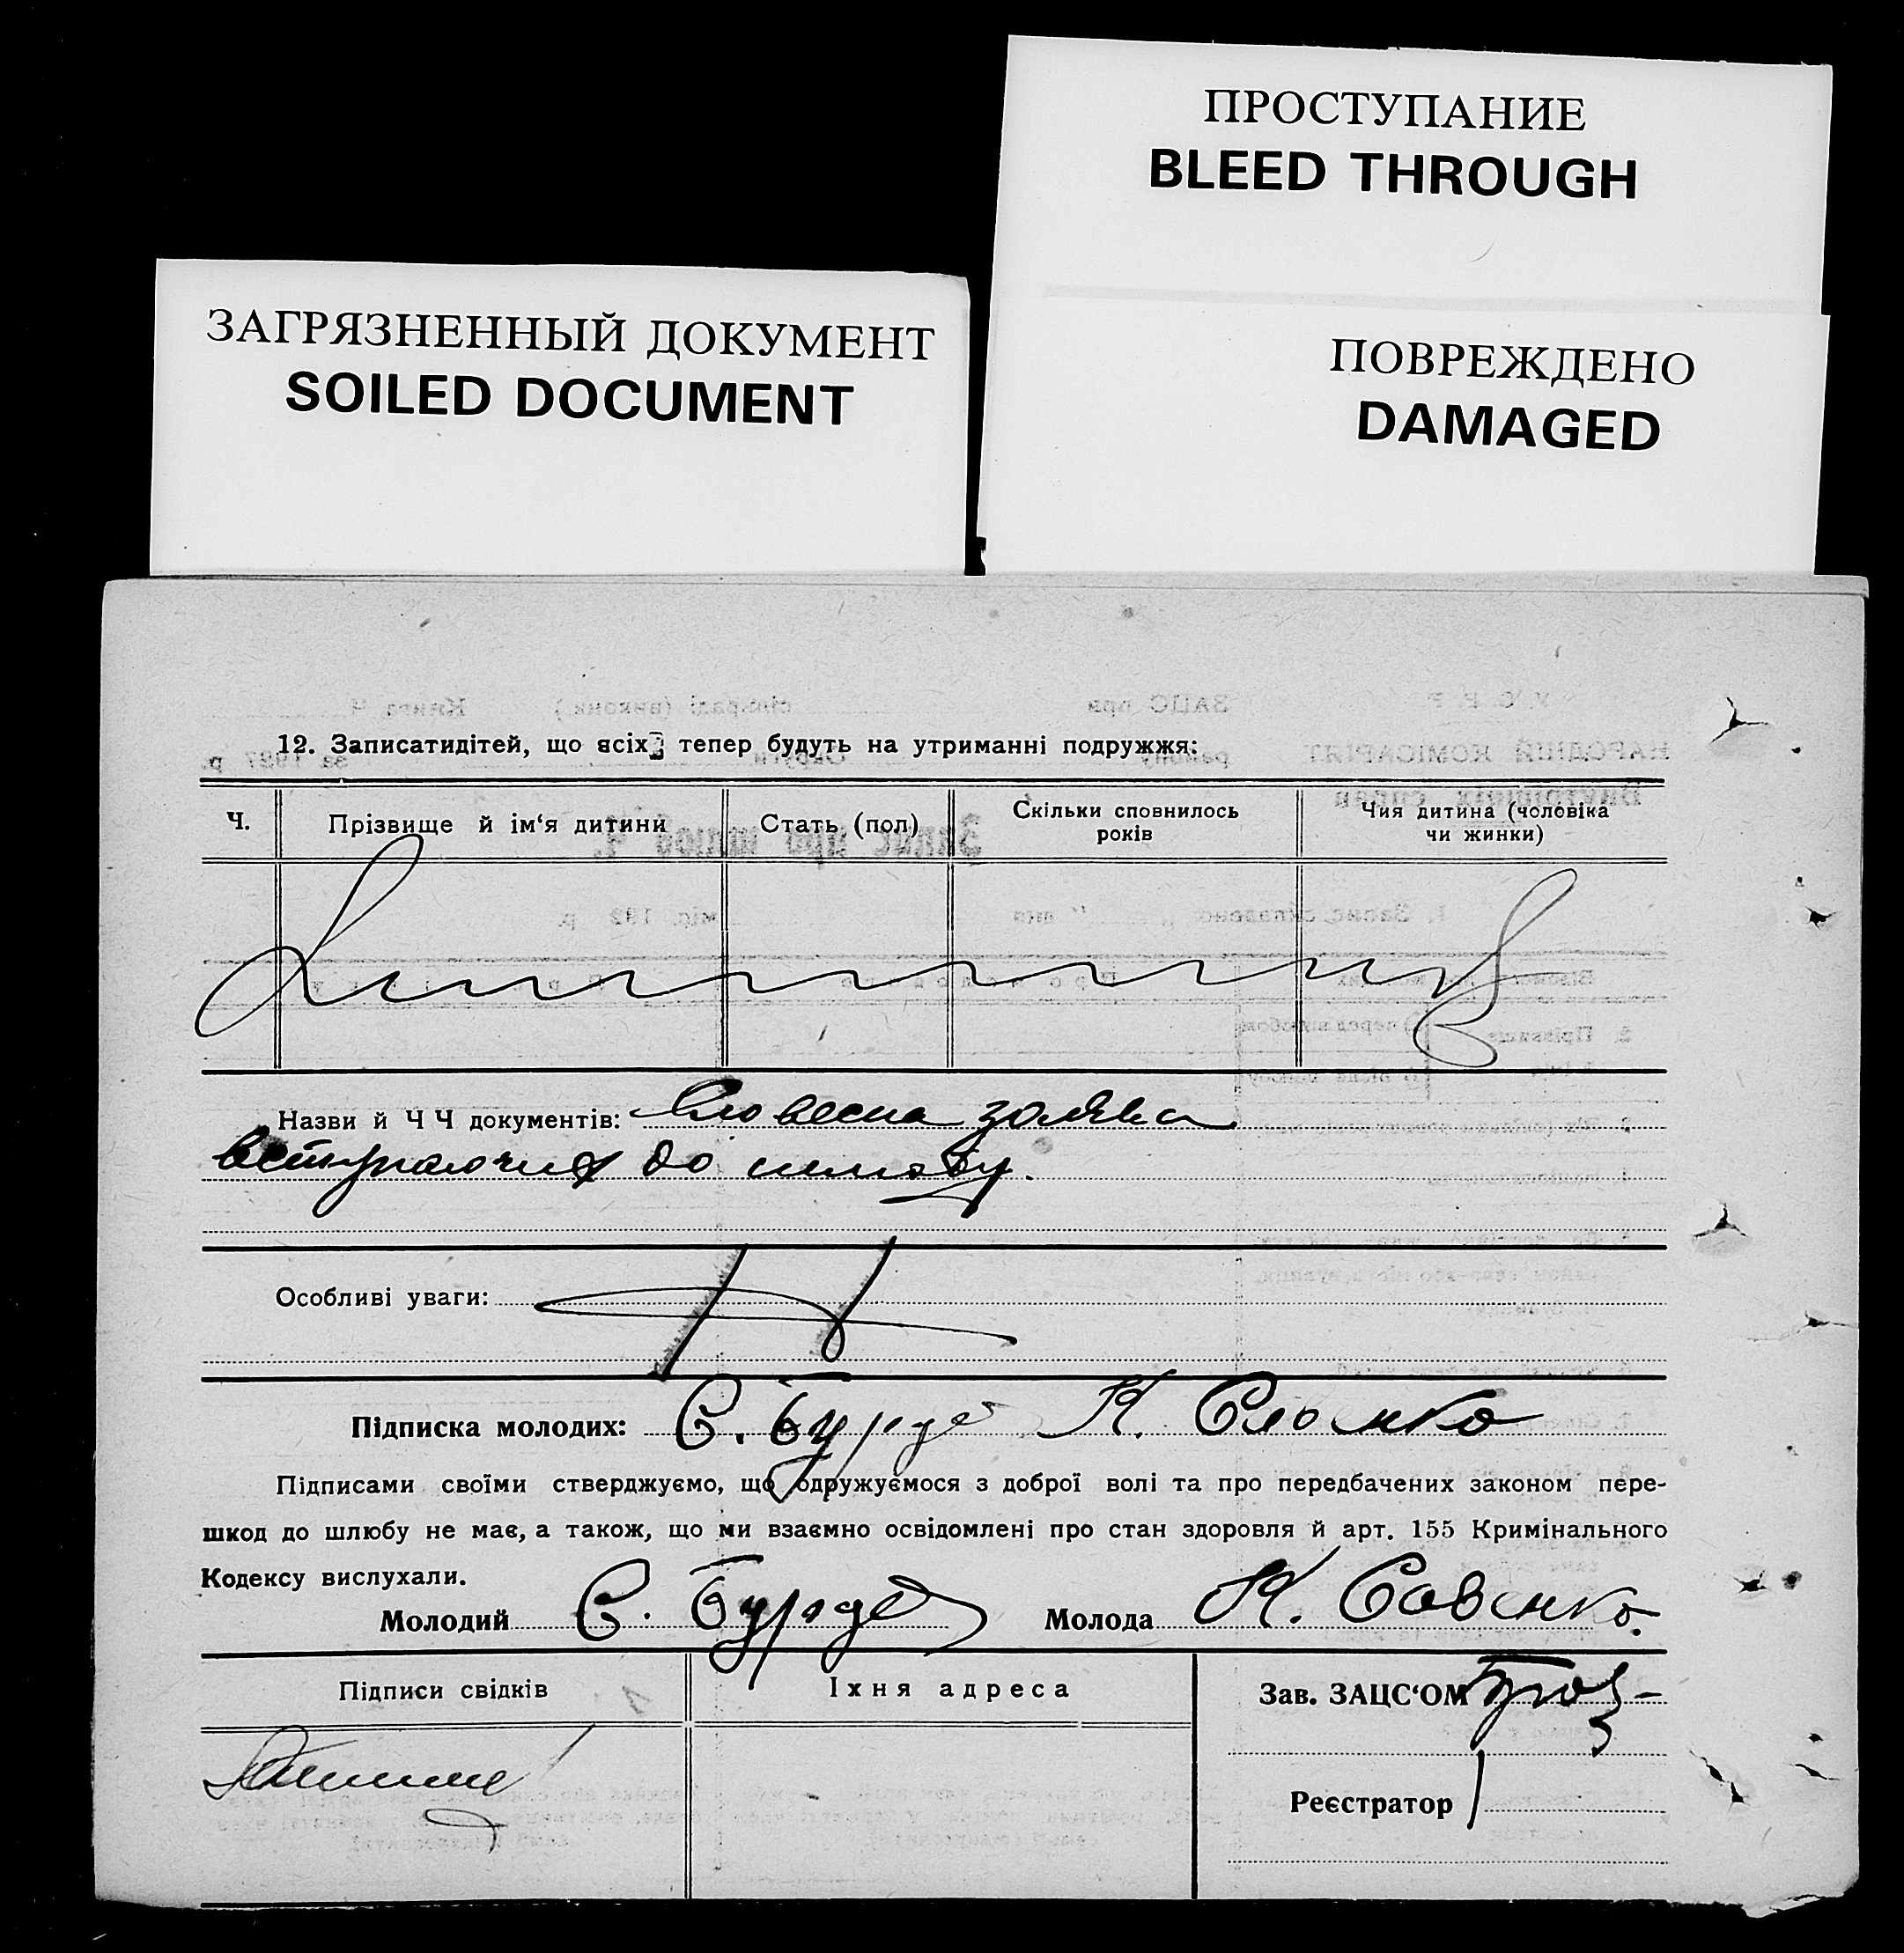 ПРОСТУПАНИЕ
BLEED THROUGH
ЗАГРЯЗНЕННЫЙ ДОКУМЕНТ
SOILED DOCUMENT
ПОВРЕЖДЕНО
DAMAGED
12. Записатидітей, що всіх тепер будуть на утриманні подружжя:
Ч.
Прізвище й ім‘я дитини
Стать (пол)
Скільки сповнилось
років
Чия дитина (чоловіка
чи жинки)
Назви й Ч Ч документів: Словесна заява
вступаючих до шлюбу.
Особливі уваги:
Підписка молодих: С. К.
Підписами своїми стверджуємо, що одружуємося з доброї волі та про передбачених законом пере-
шкод до шлюбу не має, а також, що ми взаємно освідомлені про стан здоровля й арт. 155 Кримінального
Кодексу вислухали.
Молодий С. Молода К. Савенко.
Підписи свідків
Їхня адреса
Зав. ЗАЦС‘ОМ
Реєстратор